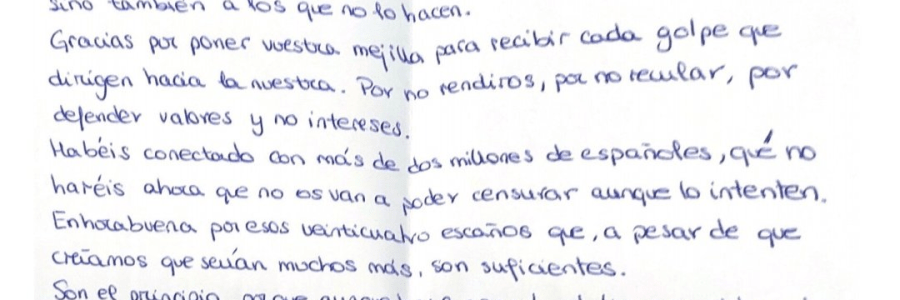 sino también a los que no lo hacen.
Gracias por poner vuestra mejilla para recibir cada golpe que
dirigen hacia la nuestra. Por no rendiros, por no recular, por
defender valores y no intereses.
Habéis conectado con más de dos millones de españoles, qué no
haréis ahora que no os van a poder censurar aunque lo intenten.
Enhorabuena por esos veinticuatro escaños que, a pesar de que
creíamos que serían muchos más, son suficientes.
Son el principio